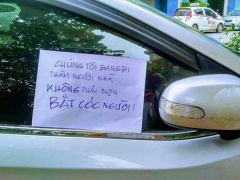 CHÚNG TÔI ĐANG ĐI
THĂM NGƯỜI NHÀ
KHÔNG PHẢI BỌN
BẮT CÓC NGƯỜI!